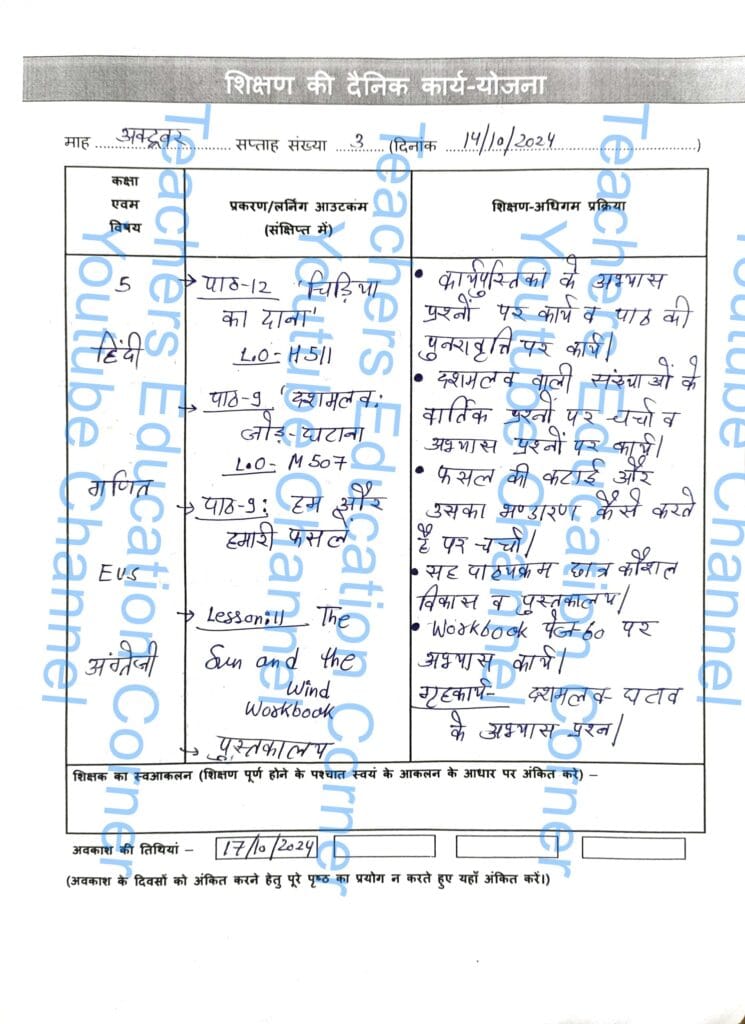 शिक्षण की दैनिक कार्य-योजना
माह अक्टूबर सप्ताह संख्या 3 (दिनांक 14/10/2024)
कक्षा
एवम
विषय
प्रकरण/लर्निंग आउटकम
(संक्षिप्त में)
शिक्षण-अधिगम प्रक्रिया
5
हिंदी
गणित
EVS
अंग्रेजी
→ पाठ-12 'चिड़िया
का दाना'
L.O-H511
→ पाठ-9 'दशमलव:
जोड़-घटाना
L.O- M507
→ पाठ-9: हम और
हमारी फसलें
→ Lesson:11 The
Sun and the
Wind
Workbook
→ पुस्तकालय
• कार्यपुस्तिका के अभ्यास
प्रश्नों पर कार्य व पाठ की
पुनरावृत्ति पर कार्य।
• दशमलव वाली संख्याओं के
वार्तिक प्रश्नों पर चर्चा व
अभ्यास प्रश्नों पर कार्य।
• फसल की कटाई और
उसका भण्डारण कैसे करते
है पर चर्चा।
• सह पाठ्यक्रम छात्र कौशल
विकास व पुस्तकालय।
• Workbook पेज-60 पर
अभ्यास कार्य।
गृहकार्य- दशमलव-घटाव
के अभ्यास प्रश्न।
शिक्षक का स्वआकलन (शिक्षण पूर्ण होने के पश्चात स्वयं के आकलन के आधार पर अंकित करे) –
अवकाश की तिथियां – 17/10/2024
(अवकाश के दिवसों को अंकित करने हेतु पूरे पृष्ठ का प्रयोग न करते हुए यहाँ अंकित करें।)
Teachers Education Corner
Youtube Channel
Teachers Education Corner
Youtube Channel
Teachers Education Corner
Youtube Channel